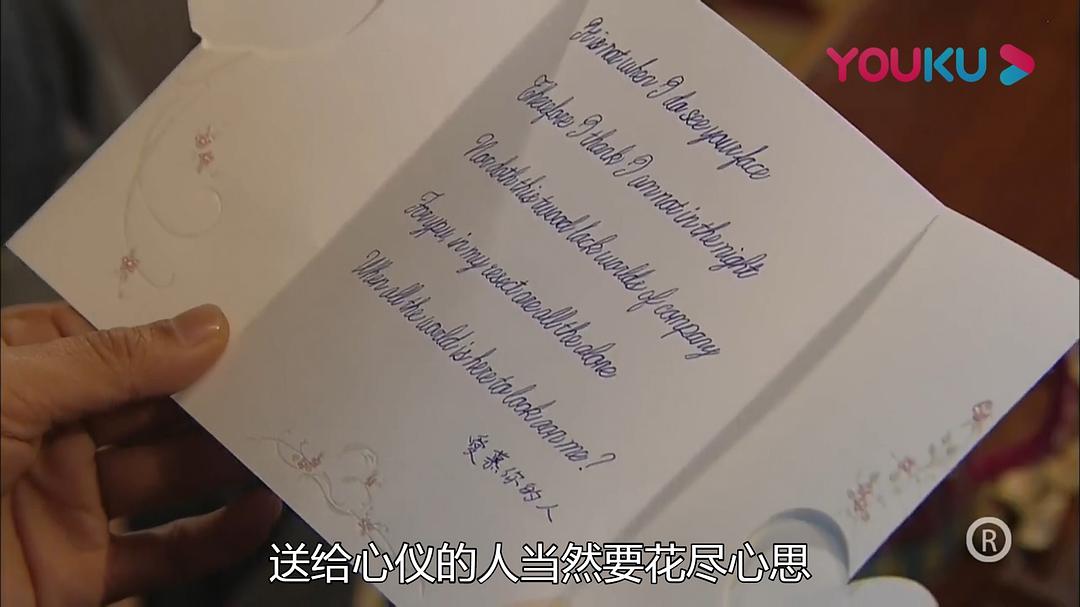 YOUKU
It is not when I do see your face
Therefore I think I am not in the night
Nor doth this wood lack worlds of company
For you, in my resect are all the alone
When all the world is here to look aon me?
爱慕你的人
送给心仪的人当然要花尽心思
®